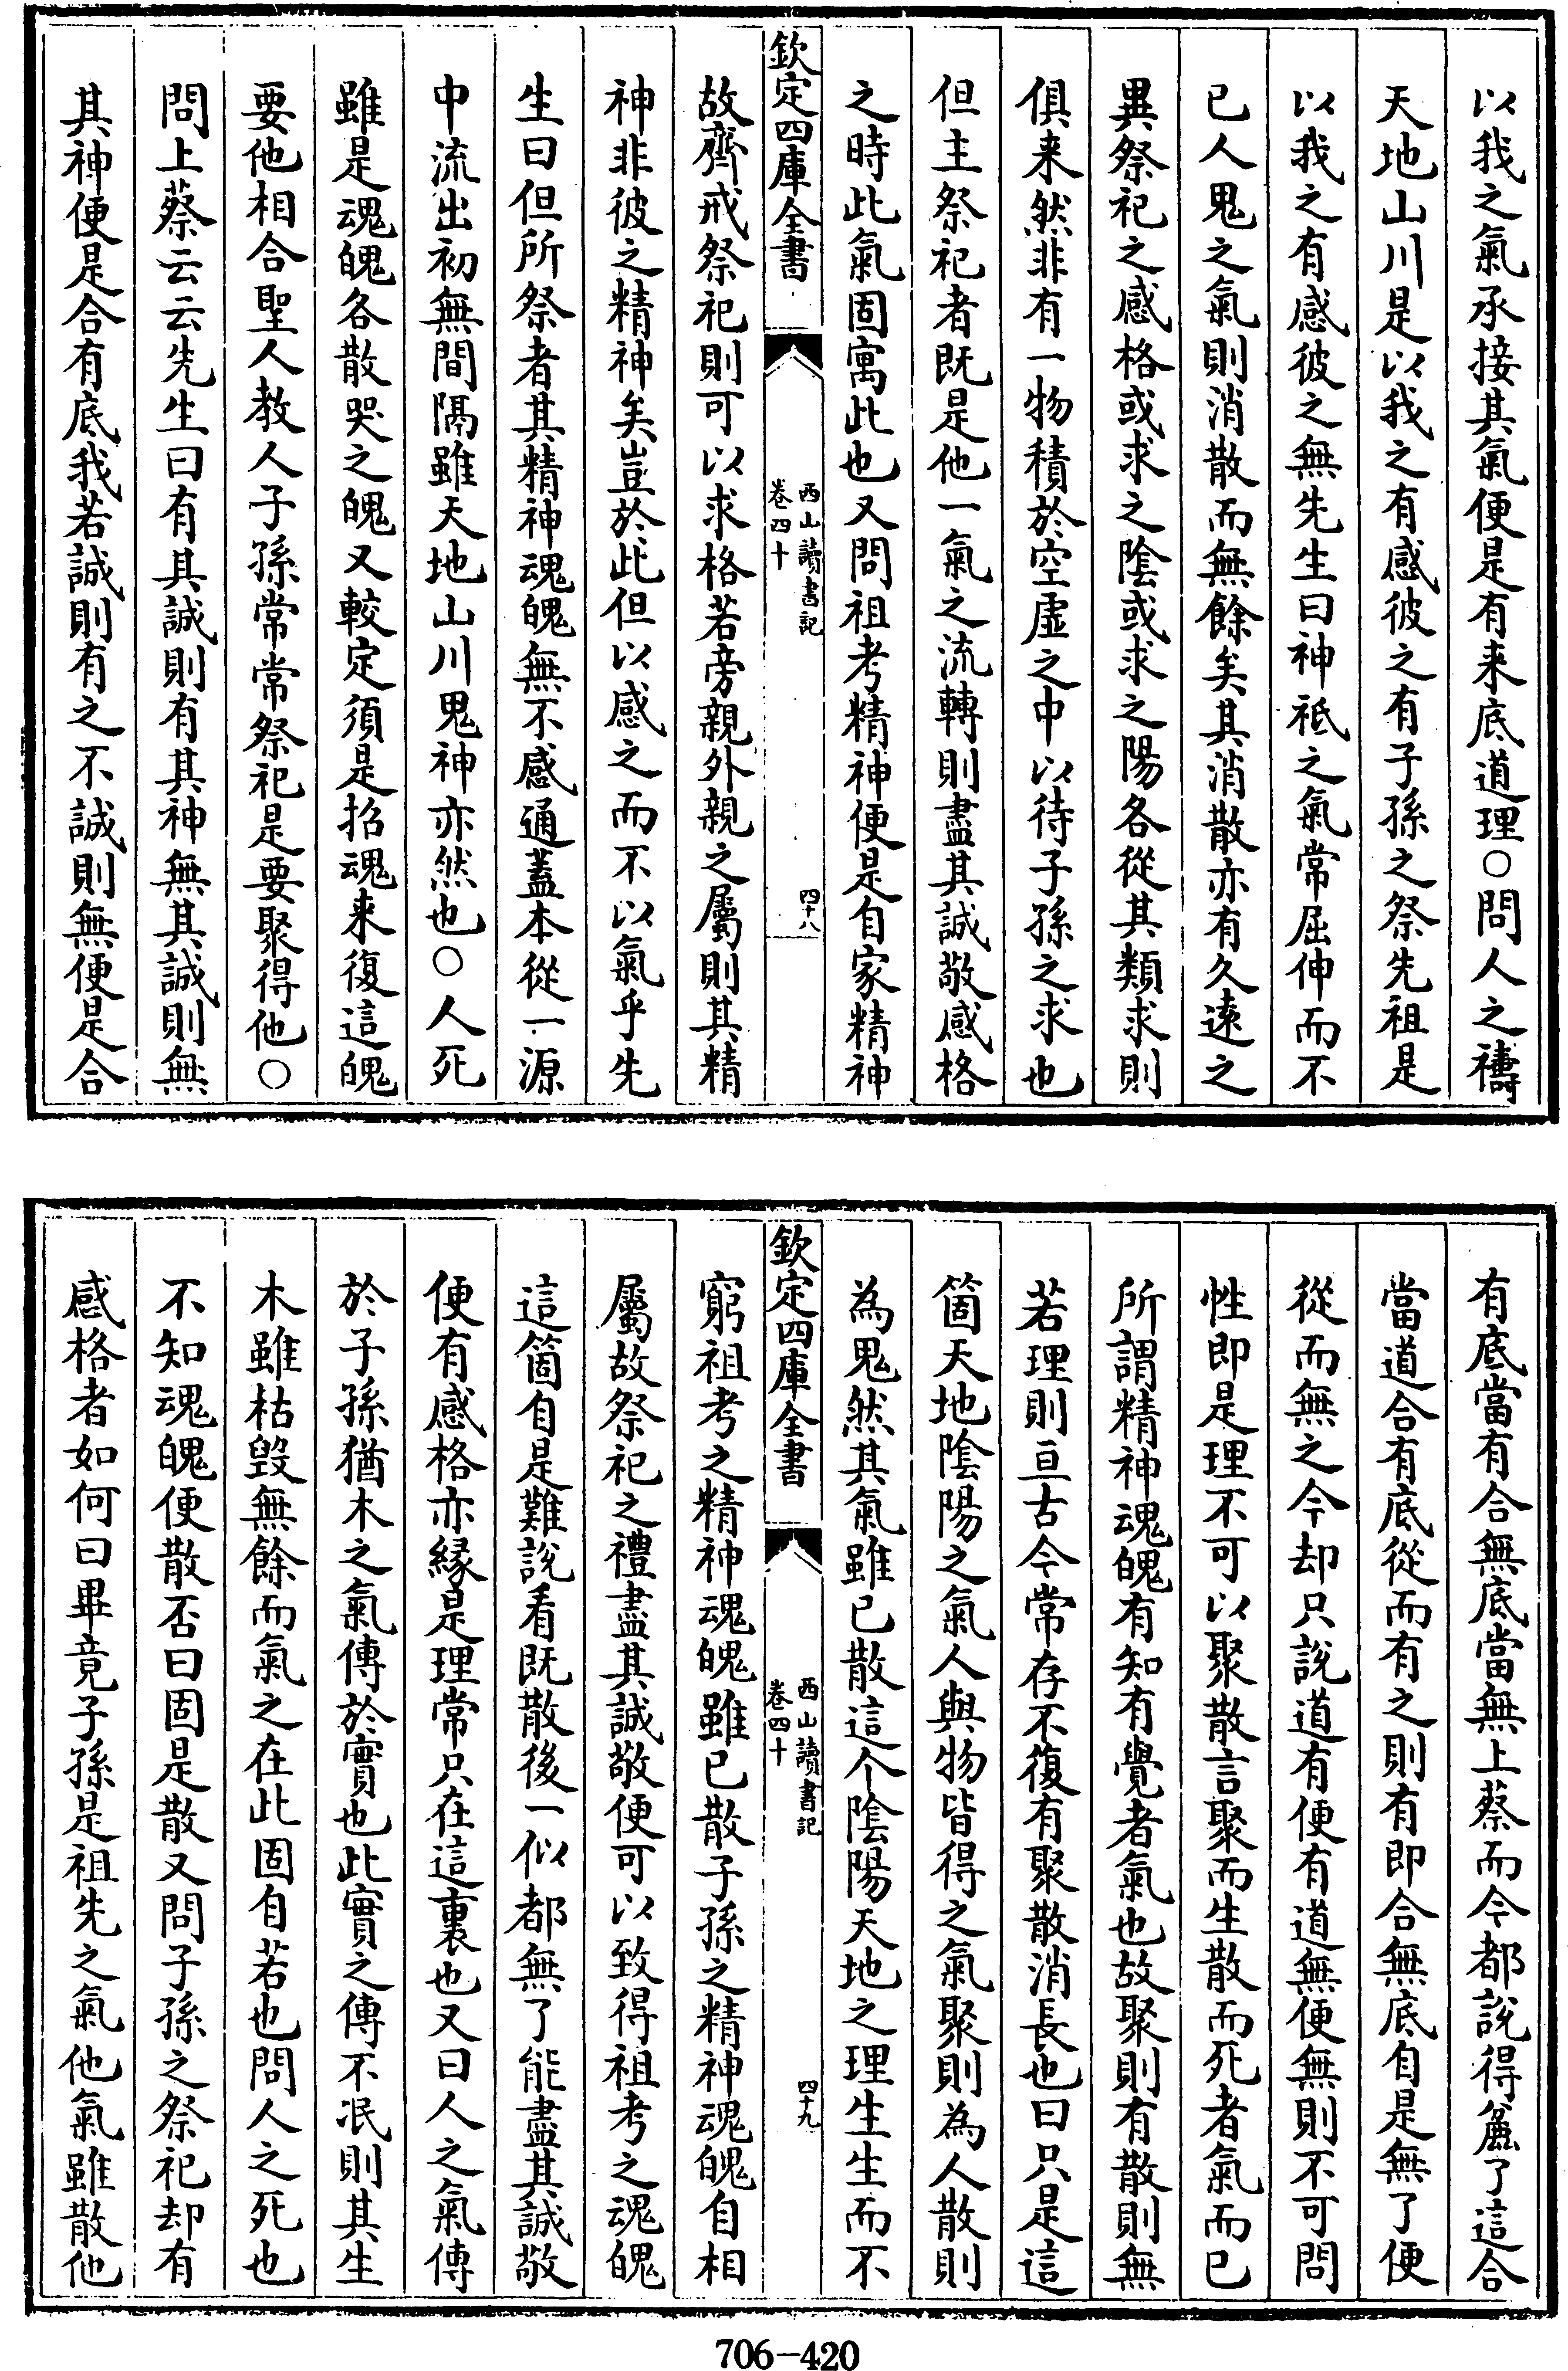 以我之氣承接其氣便是有来底道理○問人之禱
天地山川是以我之有感彼之有子孫之祭先祖是
以我之有感彼之無先生曰神祗之氣常屈伸而不
已人鬼之氣則消散而無餘矣其消散亦有久速之
異祭祀之感格或求之陰或求之陽各從其類求則
俱来然非有一物積於空虛之中以待子孫之求也
但主祭祀者既是他一氣之流轉則盡其誠敬感格
之時此氣固寓此也又問祖考精神便是自家精神
欽定四庫全書
西山讀書記
卷四十
四十八
故齊戒祭祀則可以求格若旁親外親之屬則其精
神非彼之精神矣豈於此但以感之而不以氣乎先
生曰但所祭者其精神魂魄無不感通蓋本從一源
中流出初無間隔雖天地山川鬼神亦然也○人死
雖是魂魄各散哭之魄又較定須是招魂来復這魄
要他相合聖人教人子孫常常祭祀是要聚得他○
問上蔡云云先生曰有其誠則有其神無其誠則無
其神便是合有底我若誠則有之不誠則無便是合
有底當有合無底當無上蔡而今都說得麄了這合
當道合有底從而有之則有即合無底自是無了便
從而無之今却只說道有便有道無便無則不可問
性即是理不可以聚散言聚而生散而死者氣而已
所謂精神魂魄有知有覺者氣也故聚則有散則無
若理則亘古今常存不復有聚散消長也曰只是這
箇天地陰陽之氣人與物皆得之氣聚則為人散則
為鬼然其氣雖已散這个陰陽天地之理生生而不
欽定四庫全書
西山讀書記
卷四十
四十九
窮祖考之精神魂魄雖已散子孫之精神魂魄自相
屬故祭祀之禮盡其誠敬便可以致得祖考之魂魄
這箇自是難說看既散後一似都無了能盡其誠敬
便有感格亦緣是理常只在這裏也又曰人之氣傳
於子孫猶木之氣傳於實也此實之傳不泯則其生
木雖枯毀無餘而氣之在此固自若也問人之死也
不知魂魄便散否曰固是散又問子孫之祭祀却有
感格者如何曰畢竟子孫是祖先之氣他氣雖散他
706-420